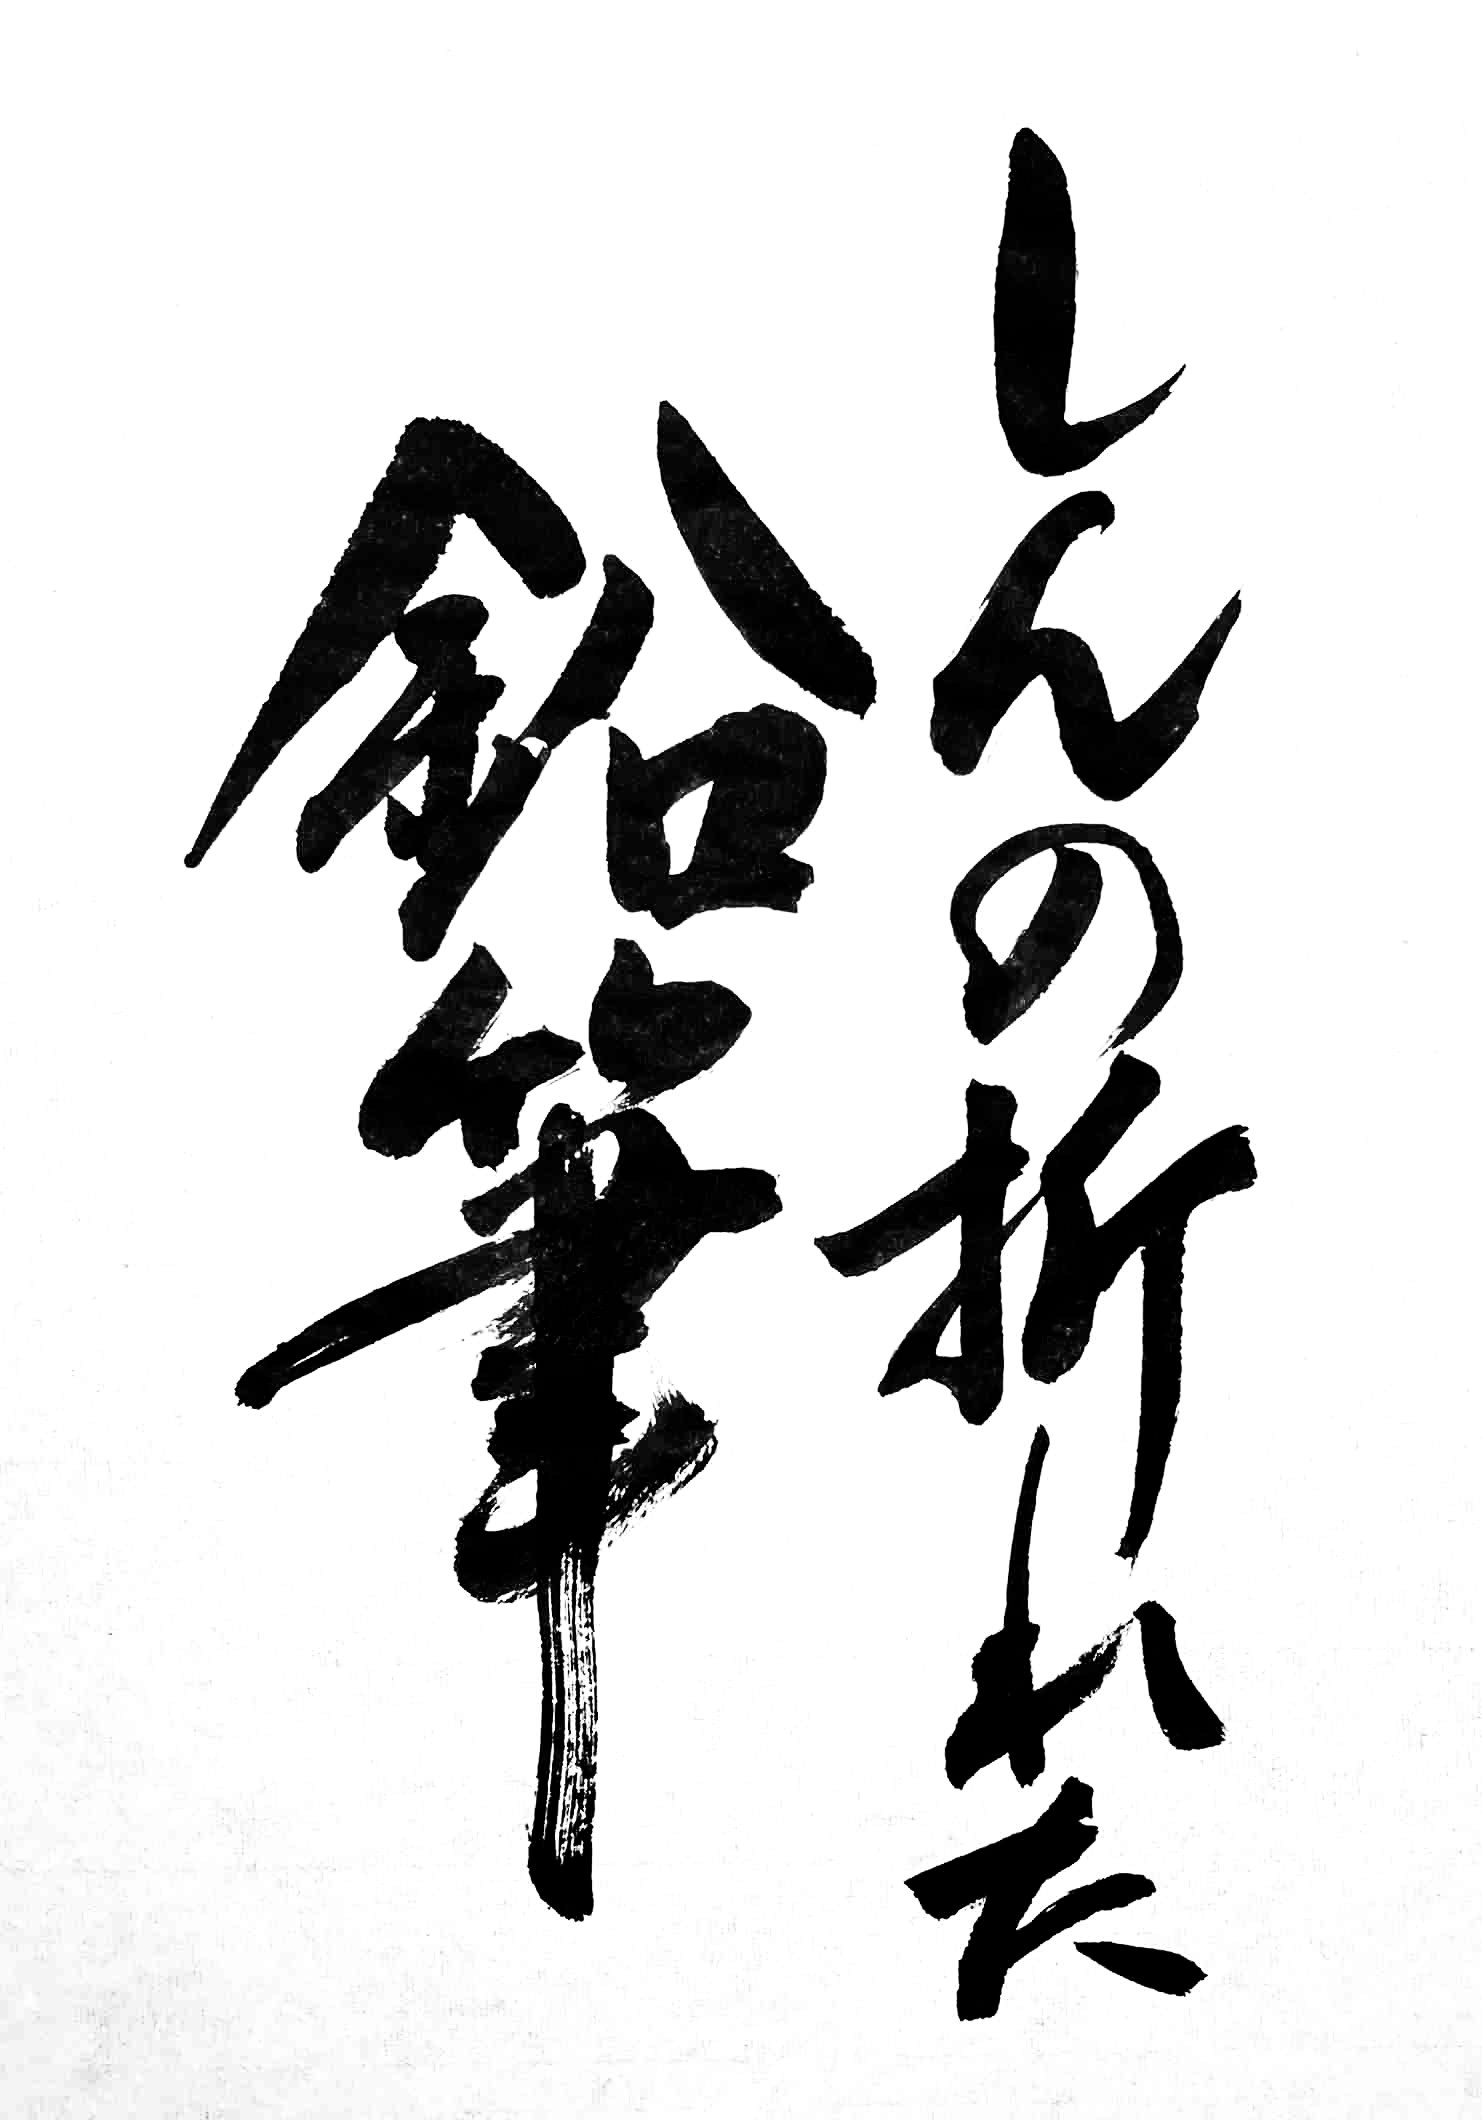 しんの折れた
鉛筆